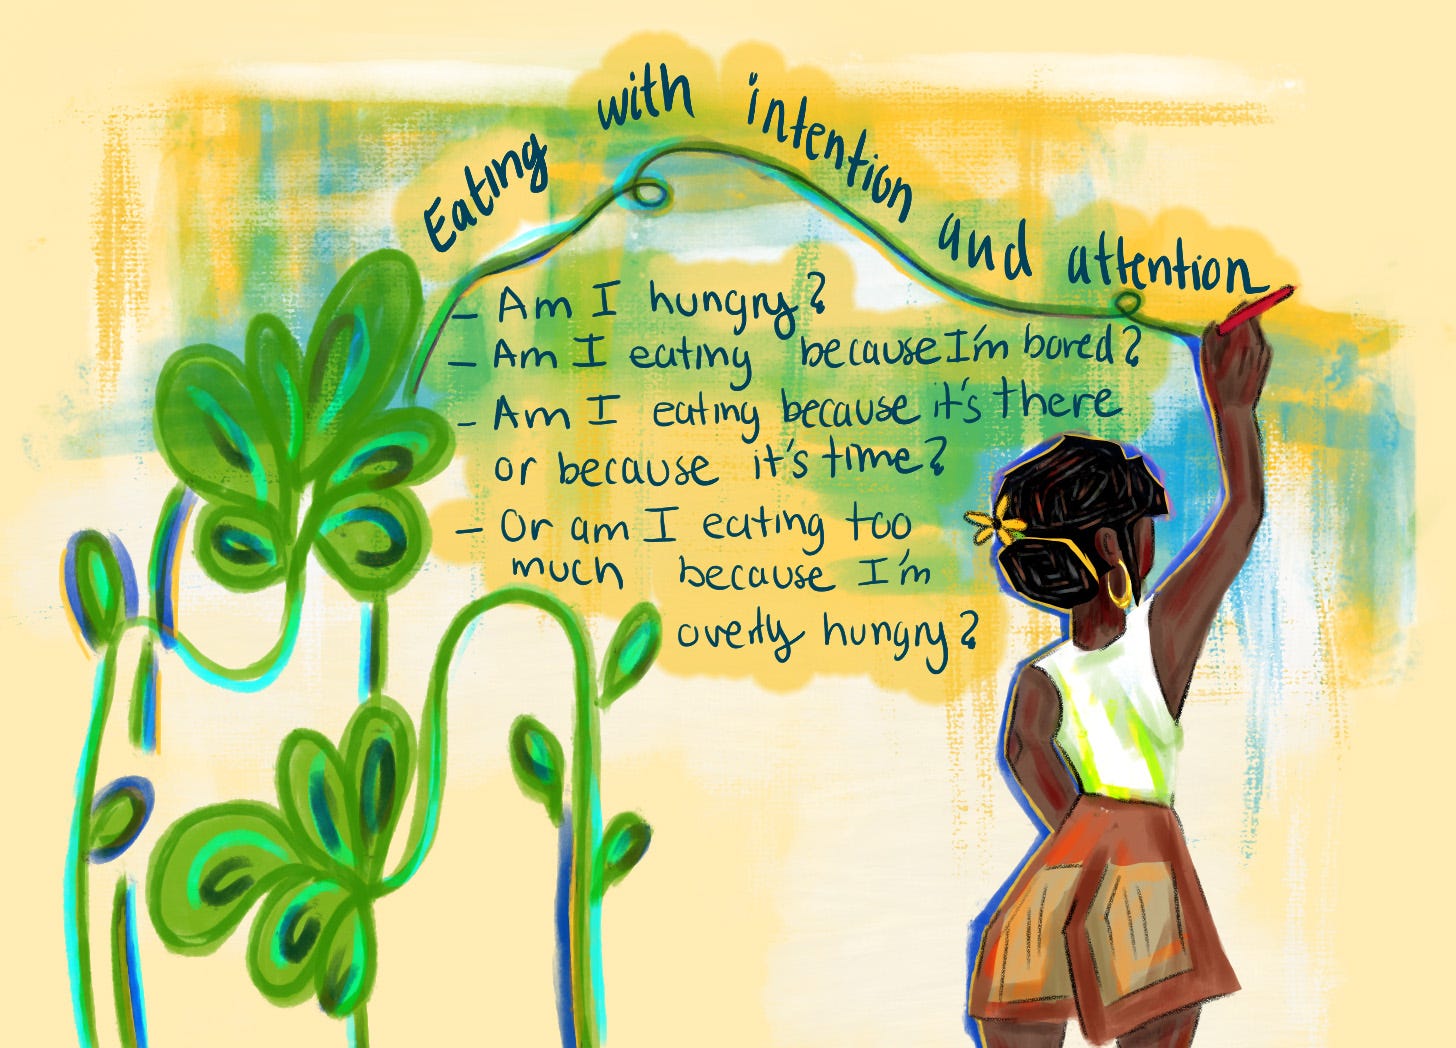 Eating with intention and attention
- Am I hungry?
- Am I eating because I'm bored?
- Am I eating because it's there
or because it's time?
- Or am I eating too
much because I'm
overly hungry?